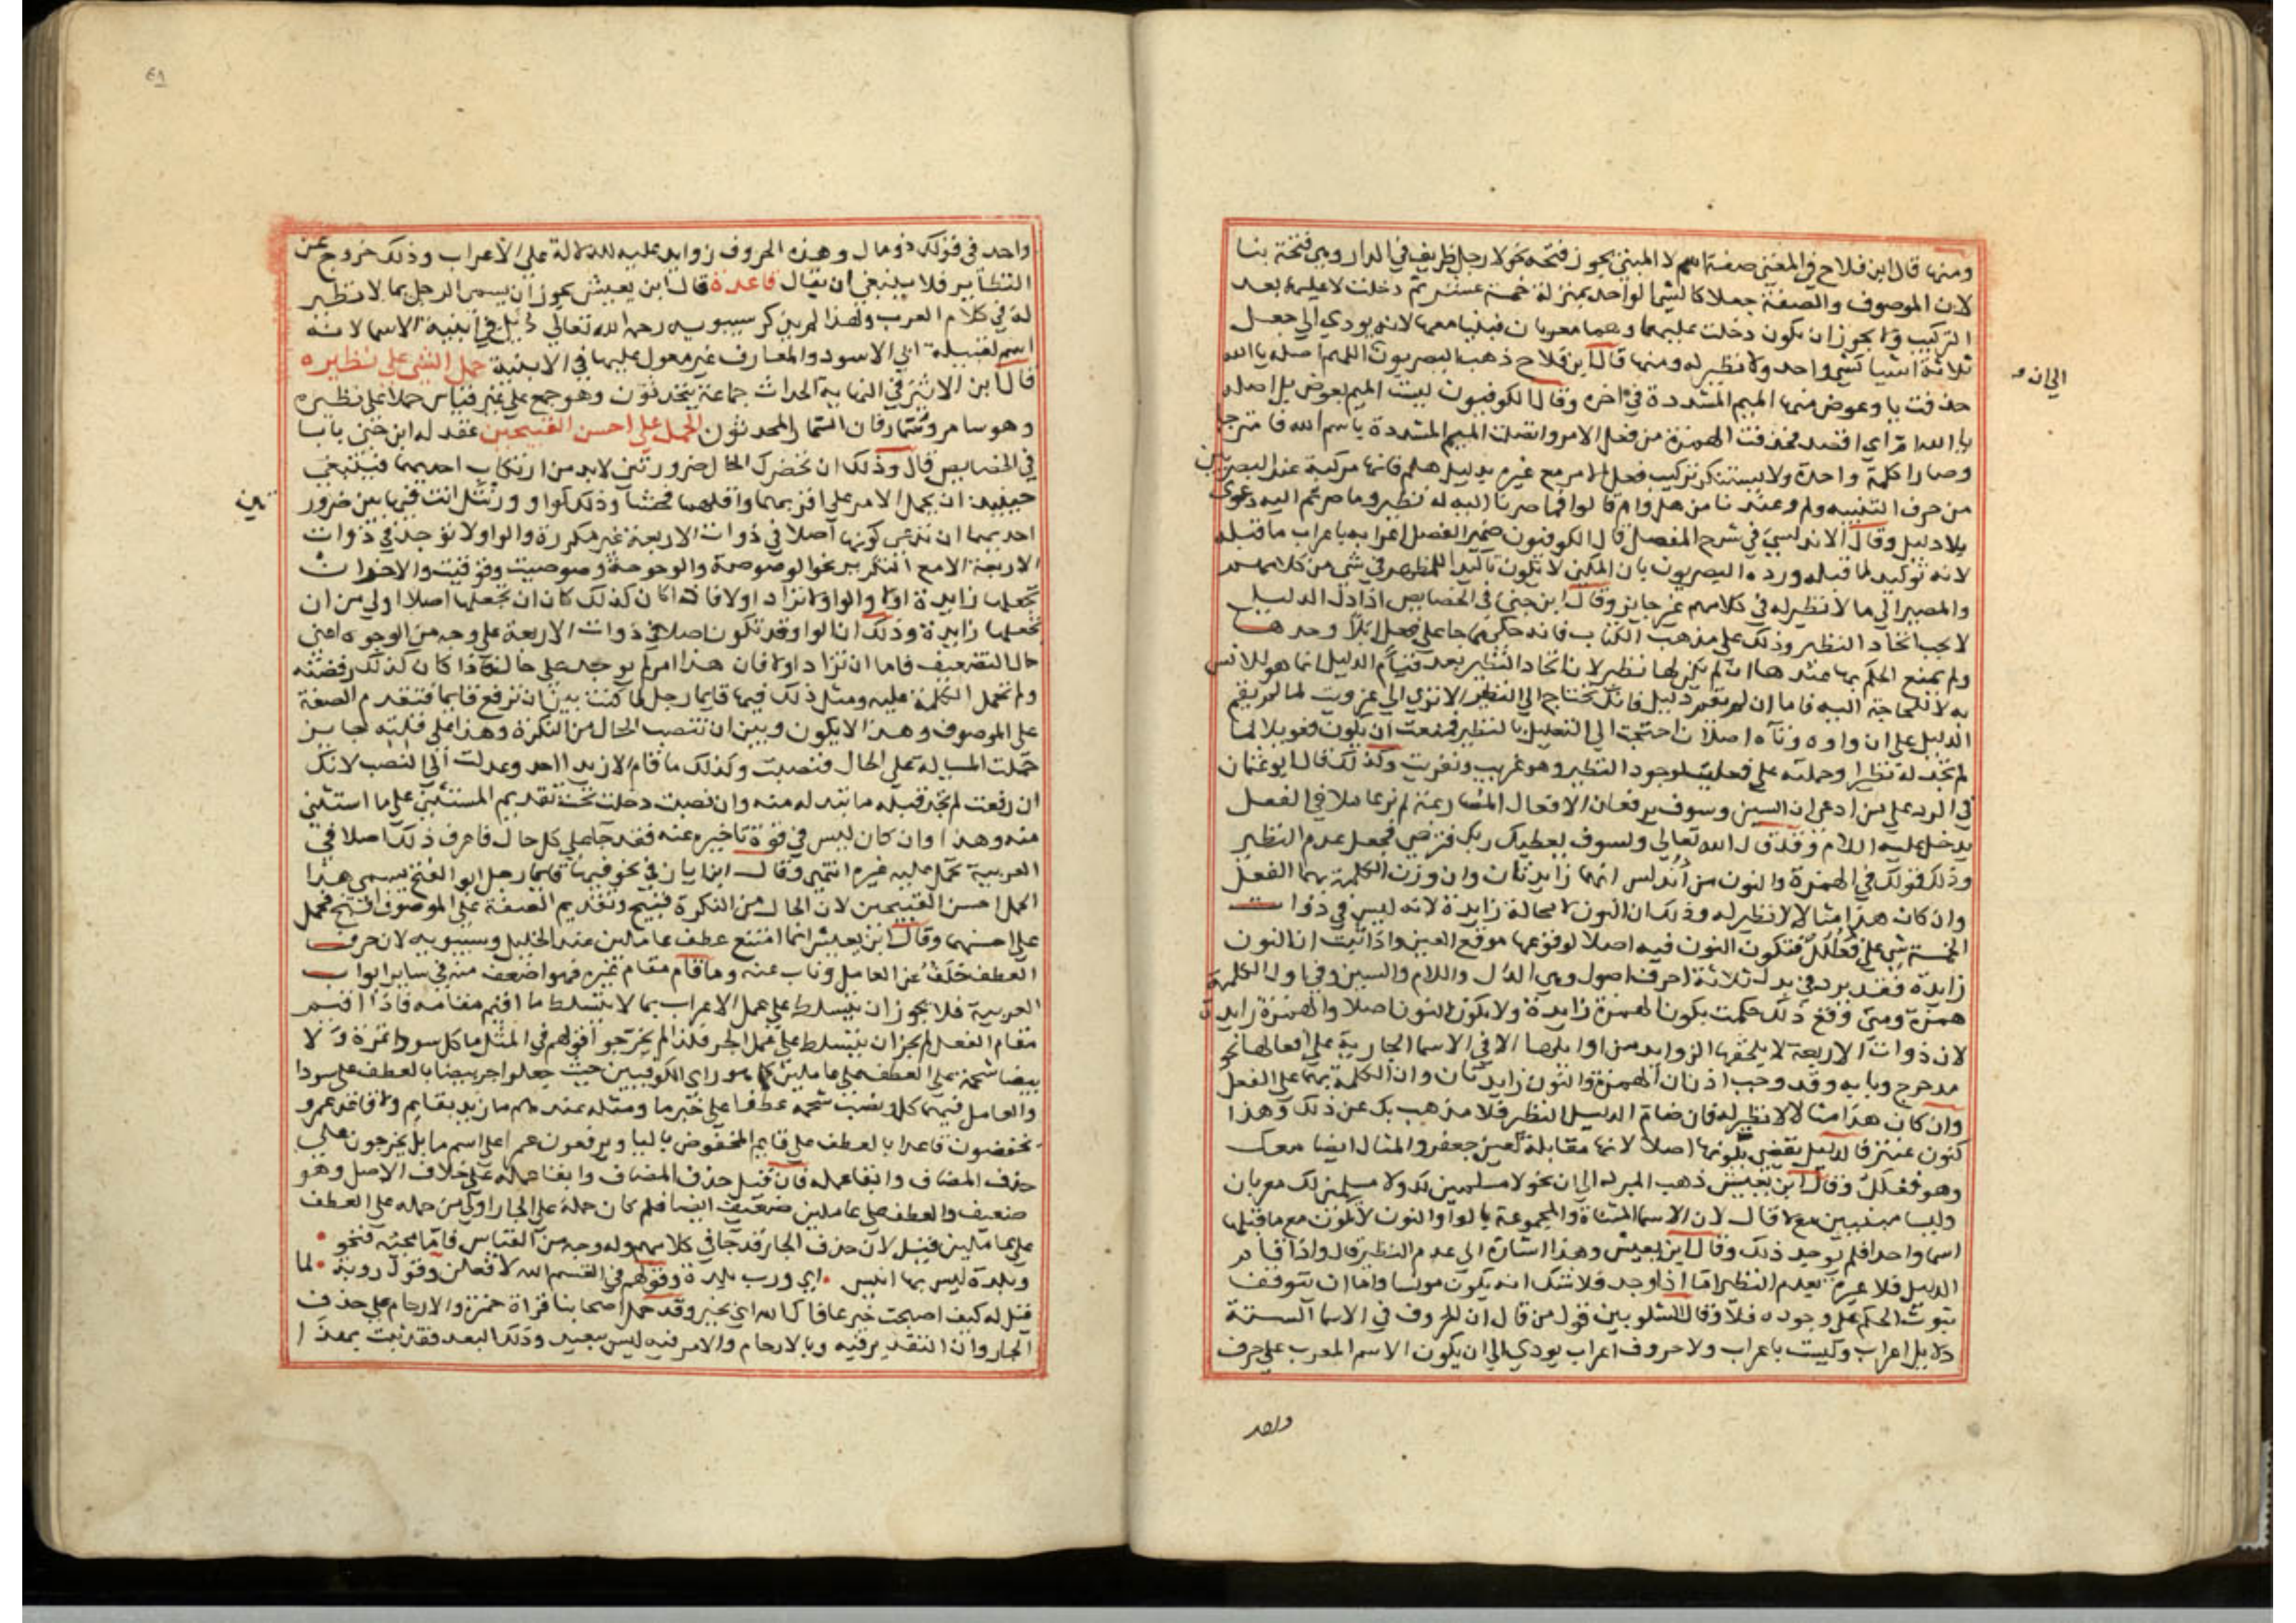 ومنها قال ابن فلاح في المغني صفة اسم لا المبني يجوز فتحه نحو لا رجل ظريف في الدار وهي فتحة بنا
لان الموصوف والصفة جعلا كالشي الواحد بمنزلة خمسة عشر ثم دخلت لا عليهما بعد
التركيب ولا يجوز ان يكون دخلت عليهما وهما معربان فبنيا معها لانه يودي الى جعل
ثلاثة اشيا كشي واحد ولا نظير له ومنها قال ابن فلاح ذهب البصريون اللهم اصله يا الله
الى ان
حذفت يا وعوض منها الميم المشددة في اخره وقال الكوفيون ليست الميم بعوض بل اصله
يا الله ام اي اقصد فحذفت الهمزة من فعل الامر واتصلت الميم المشددة ياسم الله فامتزجا
وصارا كلمة واحدة ولا يستنكر تركيب فعل الامر مع غيره بدليل هلم فانها مركبة عند البصريين
من حرف التنبيه ولم وعندنا من هل وام قالوا فما صرنا اليه له نظير وما صرتم اليه دعوى
بلا دليل وقال الاندلسي في شرح المفصل قال الكوفيون ضمير الفصل اعرابه باعراب ما قبله
لانه توكيد لما قبله ورده البصريون بان المكني لا تكون تاكيدا للمظهر في شي من كلامهم
والمصير الى ما لا نظير له في كلامهم غير جايز وقال ابن جني في الخصايص اذا دل الدليل
لا يجب ايجاد النظير وذلك على مذهب الكتاب فانه حكى مما جا على فعل ابلا وحدها
ولم يمنع الحكم بها عنده ان لم يكن لها نظير لان ايجاد النظير بعد قيام الدليل انما هو للانس
به لا للحاجة اليه فاما ان لم يقم دليل فانك تحتاج الى النظير الا ترى الى عزويت لما لم يقم
الدليل على ان واوه وتاه اصلان احتجت الى التعليل بالنظير فمنعت ان يكون فعويلا لما
لم تجد له نظيرا وحملته على فعليت لوجود النظير وهو عفريت ونفريت وكذلك قال ابو عثمان
في الرد على من ادعى ان السين وسوف يرفعان الافعال المضارعة لم نر عاملا في الفعل
يدخل عليه اللام وقد قال الله تعالى ولسوف يعطيك ربك فترضى فجعل عدم النظير
وذلك قولك في الهمزة والنون من اندلس انهما زايدتان وان وزن الكلمة بهما انفعل
وان كان هذا مثالا لا نظير له وذلك ان النون لا محالة زايدة لانه ليس في ذوات
الخمسة شي على فعلل فتكون النون فيه اصلا لوقوعها موقع العين واذا ثبت ان النون
زايدة فقد برد في يدك ثلاثة احرف اصول وهي الدال واللام والسين وفي اول الكلمة
همزة ومتى وقع ذلك حكمت بكون الهمزة زايدة ولا يكون النون اصلا والهمزة زايدة
لان ذوات الاربعة لا يلحقها الزوايد من اوايلها الا في الاسما الجارية على افعالها نحو
مدحرج وبابه وقد وجب اذن ان الهمزة والنون زايدتان وان الكلمة بهما على انفعل
وان كان هذا مثالا لا نظير له فان ضام الدليل النظير فلا مذهب بك عن ذلك وهذا
كنون عنتر فالدليل يقضي بكونها اصلا لانها مقابلة لعين جعفر والمثال ايضا معك
وهو فعلل وقال ابن يعيش ذهب المبرد الى ان نحو لا مسلمين لك ولا مسلمين لك معربان
وليسا مبنيين مع لا قال لان الاسما المثناة والمجموعة بالواو والنون لا تكون مع ما قبلها
اسما واحدا فلم يوجد ذلك وقال ابن يعيش وهذا اشارة الى عدم النظير قال واذا قام
الدليل فلا عبرة بعدم النظير اما اذا وجد فلا شك انه يكون مونسا واما ان يتوقف
ثبوت الحكم على وجوده فلا وقال الشلوبين قول من قال ان الحروف في الاسما الستة
دلايل اعراب وليست باعراب ولا حروف اعراب يودي الى ان يكون الاسم المعرب على حرف
واحد
واحد في قولك ذو مال وهذه الحروف زوايد عليه للدلالة على الاعراب وذلك خروج عن
النظاير فلا ينبغي ان يقال قاعدة قال ابن يعيش يجوز ان يسمى الرجل بما لا نظير
له في كلام العرب ولهذا لم يذكر سيبويه رحمه الله تعالى دئل في ابنية الاسما لانه
اسم لقبيلة ابي الاسود والمعارف غير معول عليها في الابنية حمل الشي على نظيره
قال ابن الاثير في النهاية الحداث جماعة يتحدثون وهو جمع على غير قياس حملا على نظيره
وهو سامر وسمار فان السمار المحدثون الحمل على احسن القبيحين عقد له ابن جني بابا
في الخصايص قال وذلك ان تحضرك الحال ضرورتين لابد من ارتكاب احديهما فينبغي
حينيذ ان يحمل الامر على اقربهما واقلهما فحشا وذلك كواو ورنتل انت فيها بين ضرور
تين
احديهما ان تدعي كونها اصلا في ذوات الاربعة غير مكررة والواو لا توجد في ذوات
الاربعة الا مع التكرير نحو الوصوصة والوحوحة وضوضيت وقوقيت والاخر ان
تجعلها زايدة اولا والواو لا تزاد اولا فاذا كان كذلك كان ان تجعلها اصلا اولى من ان
تجعلها زايدة وذلك ان الواو قد تكون اصلا في ذوات الاربعة على وجه من الوجوه اعني
حال التضعيف فاما ان تزاد اولا فان هذا امر لم يوجد على حال فاذا كان كذلك رفضته
ولم تحمل الكلمة عليه ومثل ذلك فيها قايما رجل لما كنت بين ان ترفع قايما فتقدم الصفة
على الموصوف وهذا لا يكون وبين ان تنصب الحال من النكرة وهذا على قلته جايز
حملت المسيلة على الحال فنصبت وكذلك ما قام الا زيدا احد وعدلت الى النصب لانك
ان رفعت لم تجد قبله ما تبدله منه وان نصبت دخلت تحت تقديم المستثنى على ما استثني
منه وهذا وان كان ليس في قوة تاخيره عنه فقد جا على كل حال فاعرف ذلك اصلا في
العربية تحمل عليه غيره انتهى وقال ابن اياز في نحو فيها قايما رجل ابو الفتح يسمي هذا
الحمل احسن القبيحين لان الحال من النكرة قبيح وتقديم الصفة على الموصوف اقبح فحمل
على احسنهما وقال ابن يعيش انما امتنع عطف عاملين عند الخليل وسيبويه لان حرف
العطف خلف عن العامل وناب عنه وما قام مقام غيره فهو اضعف منه في ساير ابواب
العربية فلا يجوز ان يتسلط على عمل الاعراب بما لا يتسلط ما اقيم مقامه فاذا اقيم
مقام الفعل لم يجز ان يتسلط على عمل الجر فلذا لم يخرجوا قولهم في المثل ما كل سودا تمرة ولا
بيضا شحمة على العطف على عاملين كما هو راي الكوفيين حيث جعلوا جر بيضا بالعطف على سودا
والعامل فيهما كل ونصب شحمة عطفا على خبر ما ومثله عندهم ما زيد بقايم ولا قاعد عمرو
يخفضون قاعدا بالعطف على قايم المخفوض بالبا ويرفعون عمرا على اسم ما بل يخرجون على
حذف المضاف وابقا عمله فان قيل حذف المضاف وابقا عمله على خلاف الاصل وهو
ضعيف والعطف على عاملين ضعيف ايضا فلم كان حمله على الجار اولى من حمله على العطف
على عاملين قيل لان حذف الجار قد جا في كلامهم وله وجه من القياس فاما مجيئه فنحو
وبلدة ليس بها انيس اي ورب بلدة وقولهم في القسم الله لافعلن وقول روبة لما
قيل له كيف اصبحت خير عافاك الله اي بخير وقد حمل اصحابنا قراة حمزة والارحام على حذف
الجار وان التقدير فيه وبالارحام والامر فيه ليس ببعيد وذلك البعد فقد ثبت بهذا